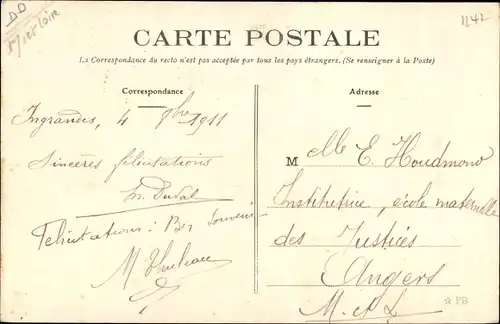 DD
1242
M et Loire
CARTE POSTALE
La Correspondance du recto n'est pas acceptée par tous les pays étrangers. (Se renseigner à la Poste)
Correspondance
Adresse
Ingrandes, 4 9bre 1911
Sincères félicitations
M. Duval
Félicitations: Bon Souvenir
M. Thuleau
Melle E. Houdmond
Institutrice, école maternelle
des Justices
Angers
M. et L.
PB